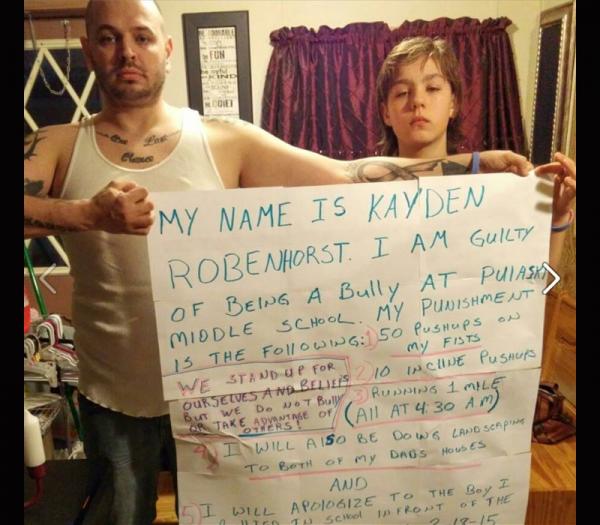 BE ADORABLE
be FUN
be joyful
be KIND
be QUIET
One Love
Chance
MY NAME IS KAYDEN
ROBENHORST. I AM GUILTY
OF BEING A Bully AT PUlASKI
MIDDLE SCHOOL. MY PUNISHMENT
IS THE FOLLOWING: 1) 50 PUSHUPS ON
MY FISTS
2) 10 INCLINE PUSHUPS
3) RUNNING 1 MILE
(All AT 4:30 AM)
WE STAND UP FOR
OURSELVES AND BELIEFS
BUT WE DO NOT Bully
OR TAKE ADVANTAGE OF
OTHERS!
4) I WILL AlSO BE DOING LANDSCAPING
TO BOTH OF MY DADS HOUSES
AND
5) I WILL APOLOGIZE TO THE BOY I
IN SCHOOL INFRONT OF THE